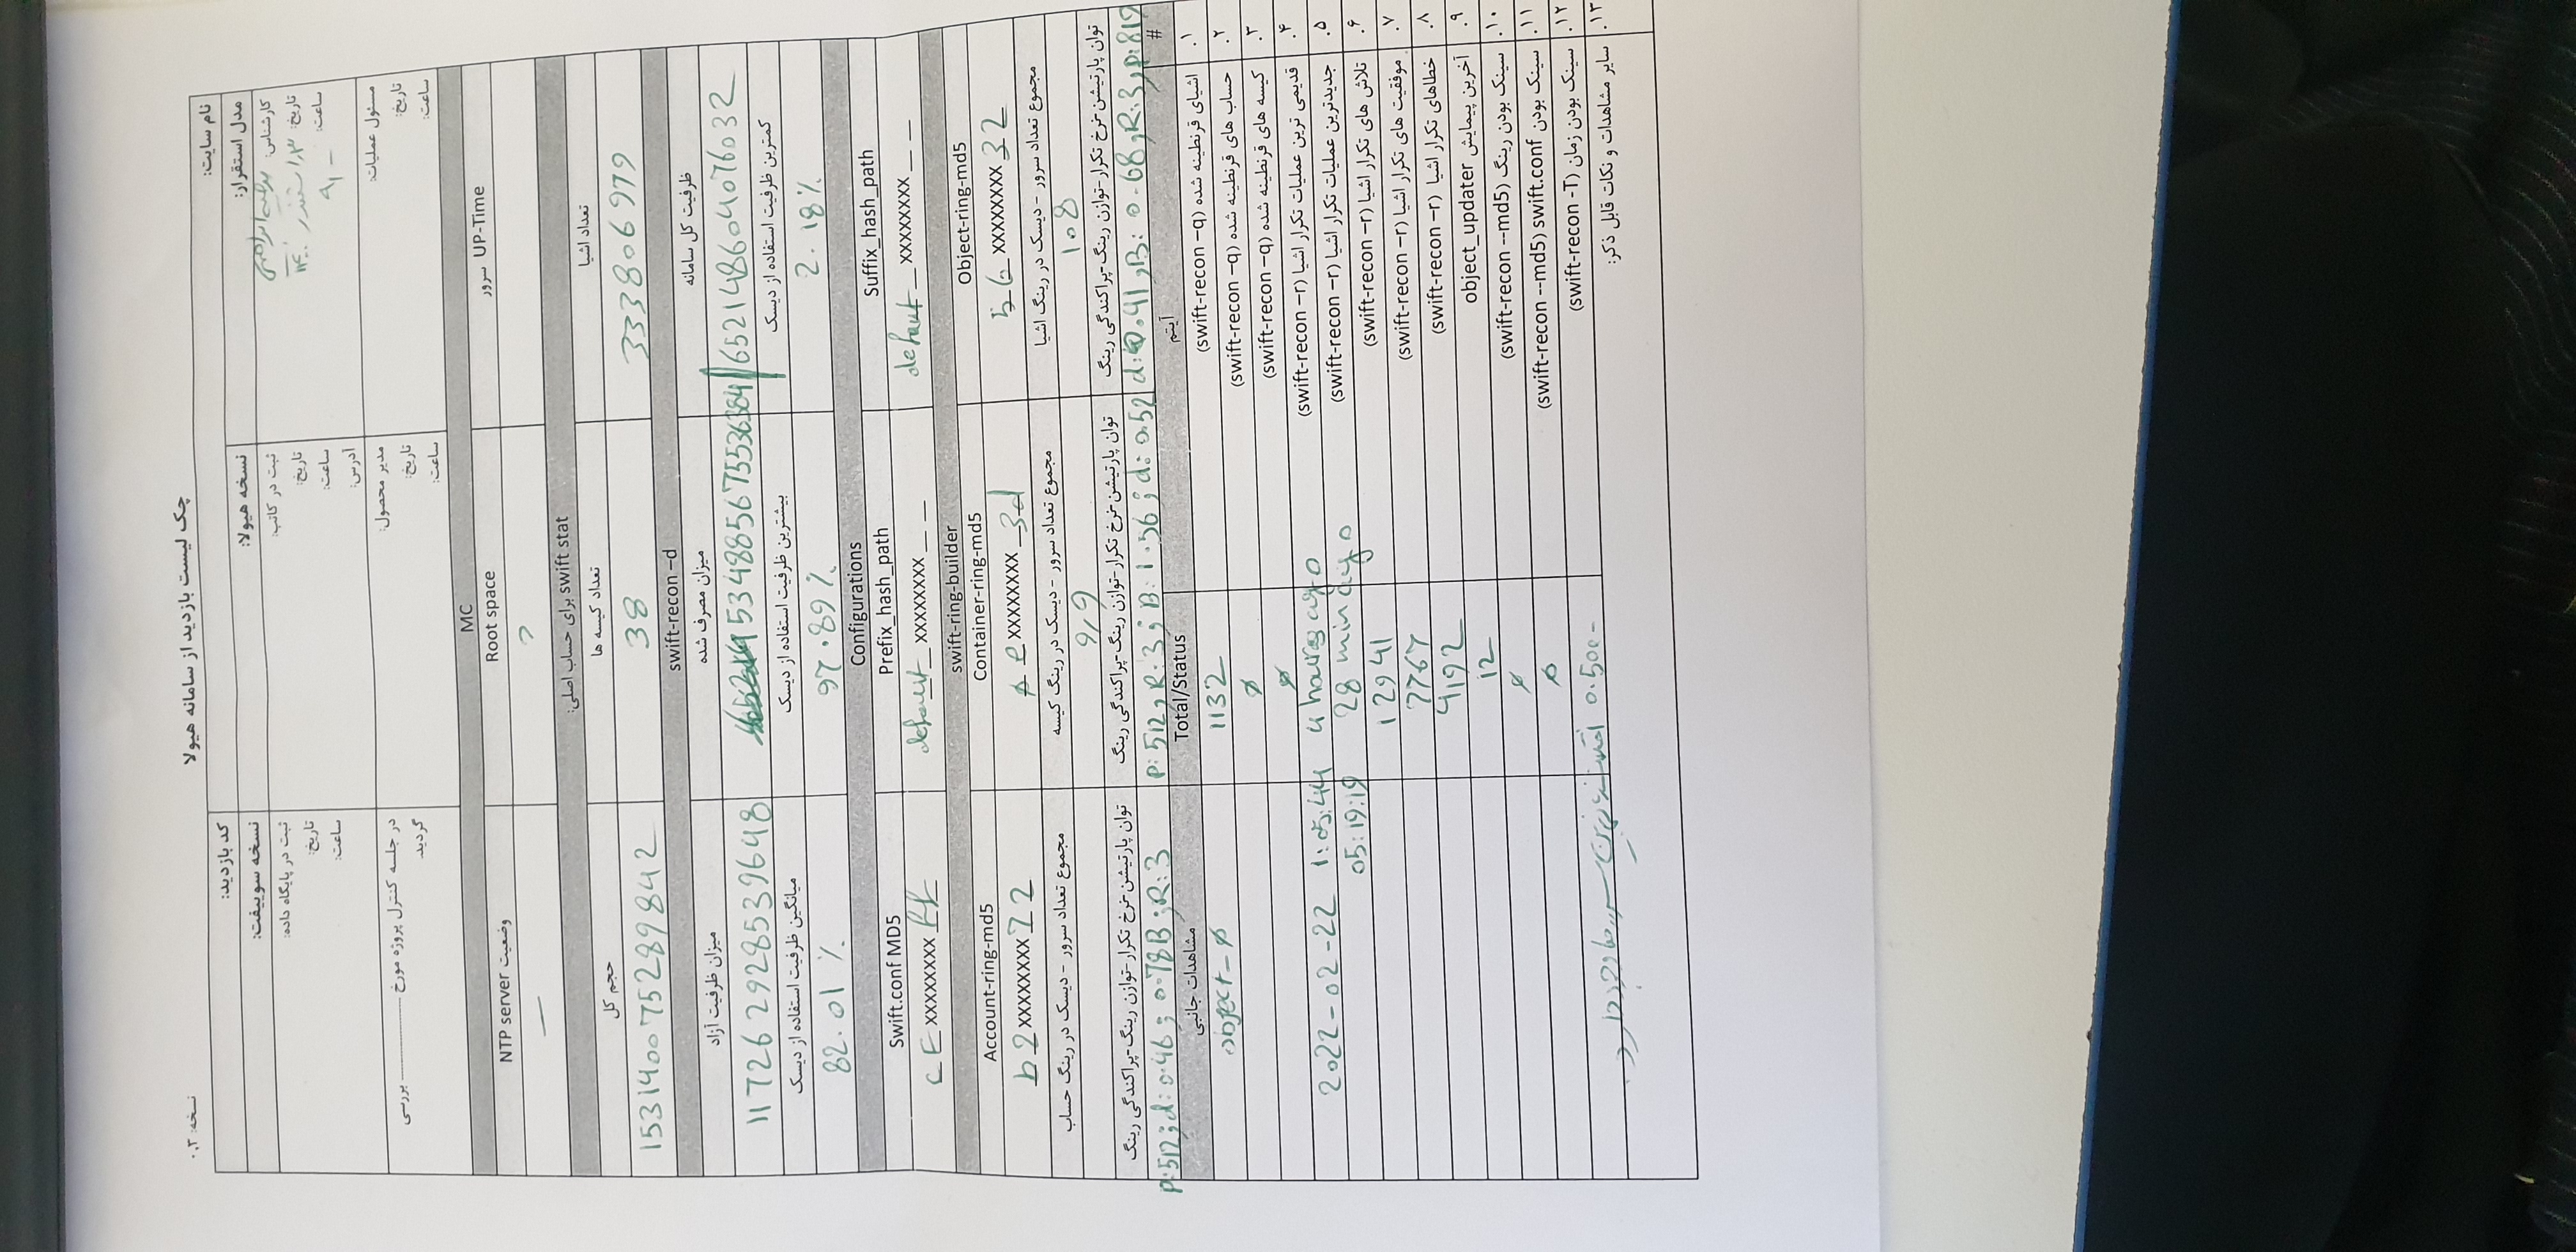 نسخه: ۰.۳
چک لیست بازدید از سامانه هیولا
نام سایت:
کد بازدید:
مدل استقرار:
نسخه هیولا:
نسخه سوییفت:
کارشناس:
تاریخ:
ساعت:
ثبت در کاتب:
تاریخ:
ساعت:
آدرس:
ثبت در پایگاه داده:
تاریخ:
ساعت:
مسئول عملیات:
تاریخ:
ساعت:
مدیر محصول:
تاریخ:
ساعت:
در جلسه کنترل پروژه مورخ ---------- بررسی
گردید.
MC
سرور UP-Time
Root space
وضعیت NTP server
?
—
swift stat برای حساب اصلی:
تعداد اشیا
تعداد کیسه ها
حجم کل
333806979
38
153140075289842
swift-recon –d
ظرفیت کل سامانه
میزان مصرف شده
میزان ظرفیت آزاد
652148604076032
534885675536384
117262928539648
کمترین ظرفیت استفاده از دیسک
بیشترین ظرفیت استفاده از دیسک
میانگین ظرفیت استفاده از دیسک
2.18%
97.89%
82.01 %
Configurations
Suffix_hash_path
Prefix_hash_path
Swift.conf MD5
_ xxxxxxxx _ _
_ xxxxxxxx _ _
c E xxxxxxxx
swift-ring-builder
Object-ring-md5
Container-ring-md5
Account-ring-md5
xxxxxxxx 32
xxxxxxxx 3d
b2 xxxxxxxx 72
مجموع تعداد سرور - دیسک در رینگ اشیا
مجموع تعداد سرور - دیسک در رینگ کیسه
مجموع تعداد سرور - دیسک در رینگ حساب
108
9/9
توان پارتیشن-نرخ تکرار-توازن رینگ-پراکندگی رینگ
توان پارتیشن-نرخ تکرار-توازن رینگ-پراکندگی رینگ
توان پارتیشن-نرخ تکرار-توازن رینگ-پراکندگی رینگ
P: 512, R: 3; B: 1.56; d: 0.52
P:512; d: 0.46; 0.78B; R:3
#
آیتم
Total/Status
مشاهدات جانبی
۱. اشیای قرنطینه شده (swift-recon –q)
1132
object - ø
۲. حساب های قرنطینه شده (swift-recon –q)
ø
۳. کیسه های قرنطینه شده (swift-recon –q)
ø
۴. قدیمی ترین عملیات تکرار اشیا (swift-recon –r)
4 hours ago
2022-02-22
۵. جدیدترین عملیات تکرار اشیا (swift-recon –r)
28 min ago
05:19:19
۶. تلاش های تکرار اشیا (swift-recon –r)
12941
۷. موفقیت های تکرار اشیا (swift-recon –r)
7767
۸. خطاهای تکرار اشیا (swift-recon –r)
4192
۹. آخرین پیمایش object_updater
12
۱۰. سینک بودن رینگ (swift-recon --md5)
ø
۱۱. سینک بودن swift.conf (swift-recon --md5)
ø
۱۲. سینک بودن زمان (swift-recon -T)
۱۳. سایر مشاهدات و نکات قابل ذکر: